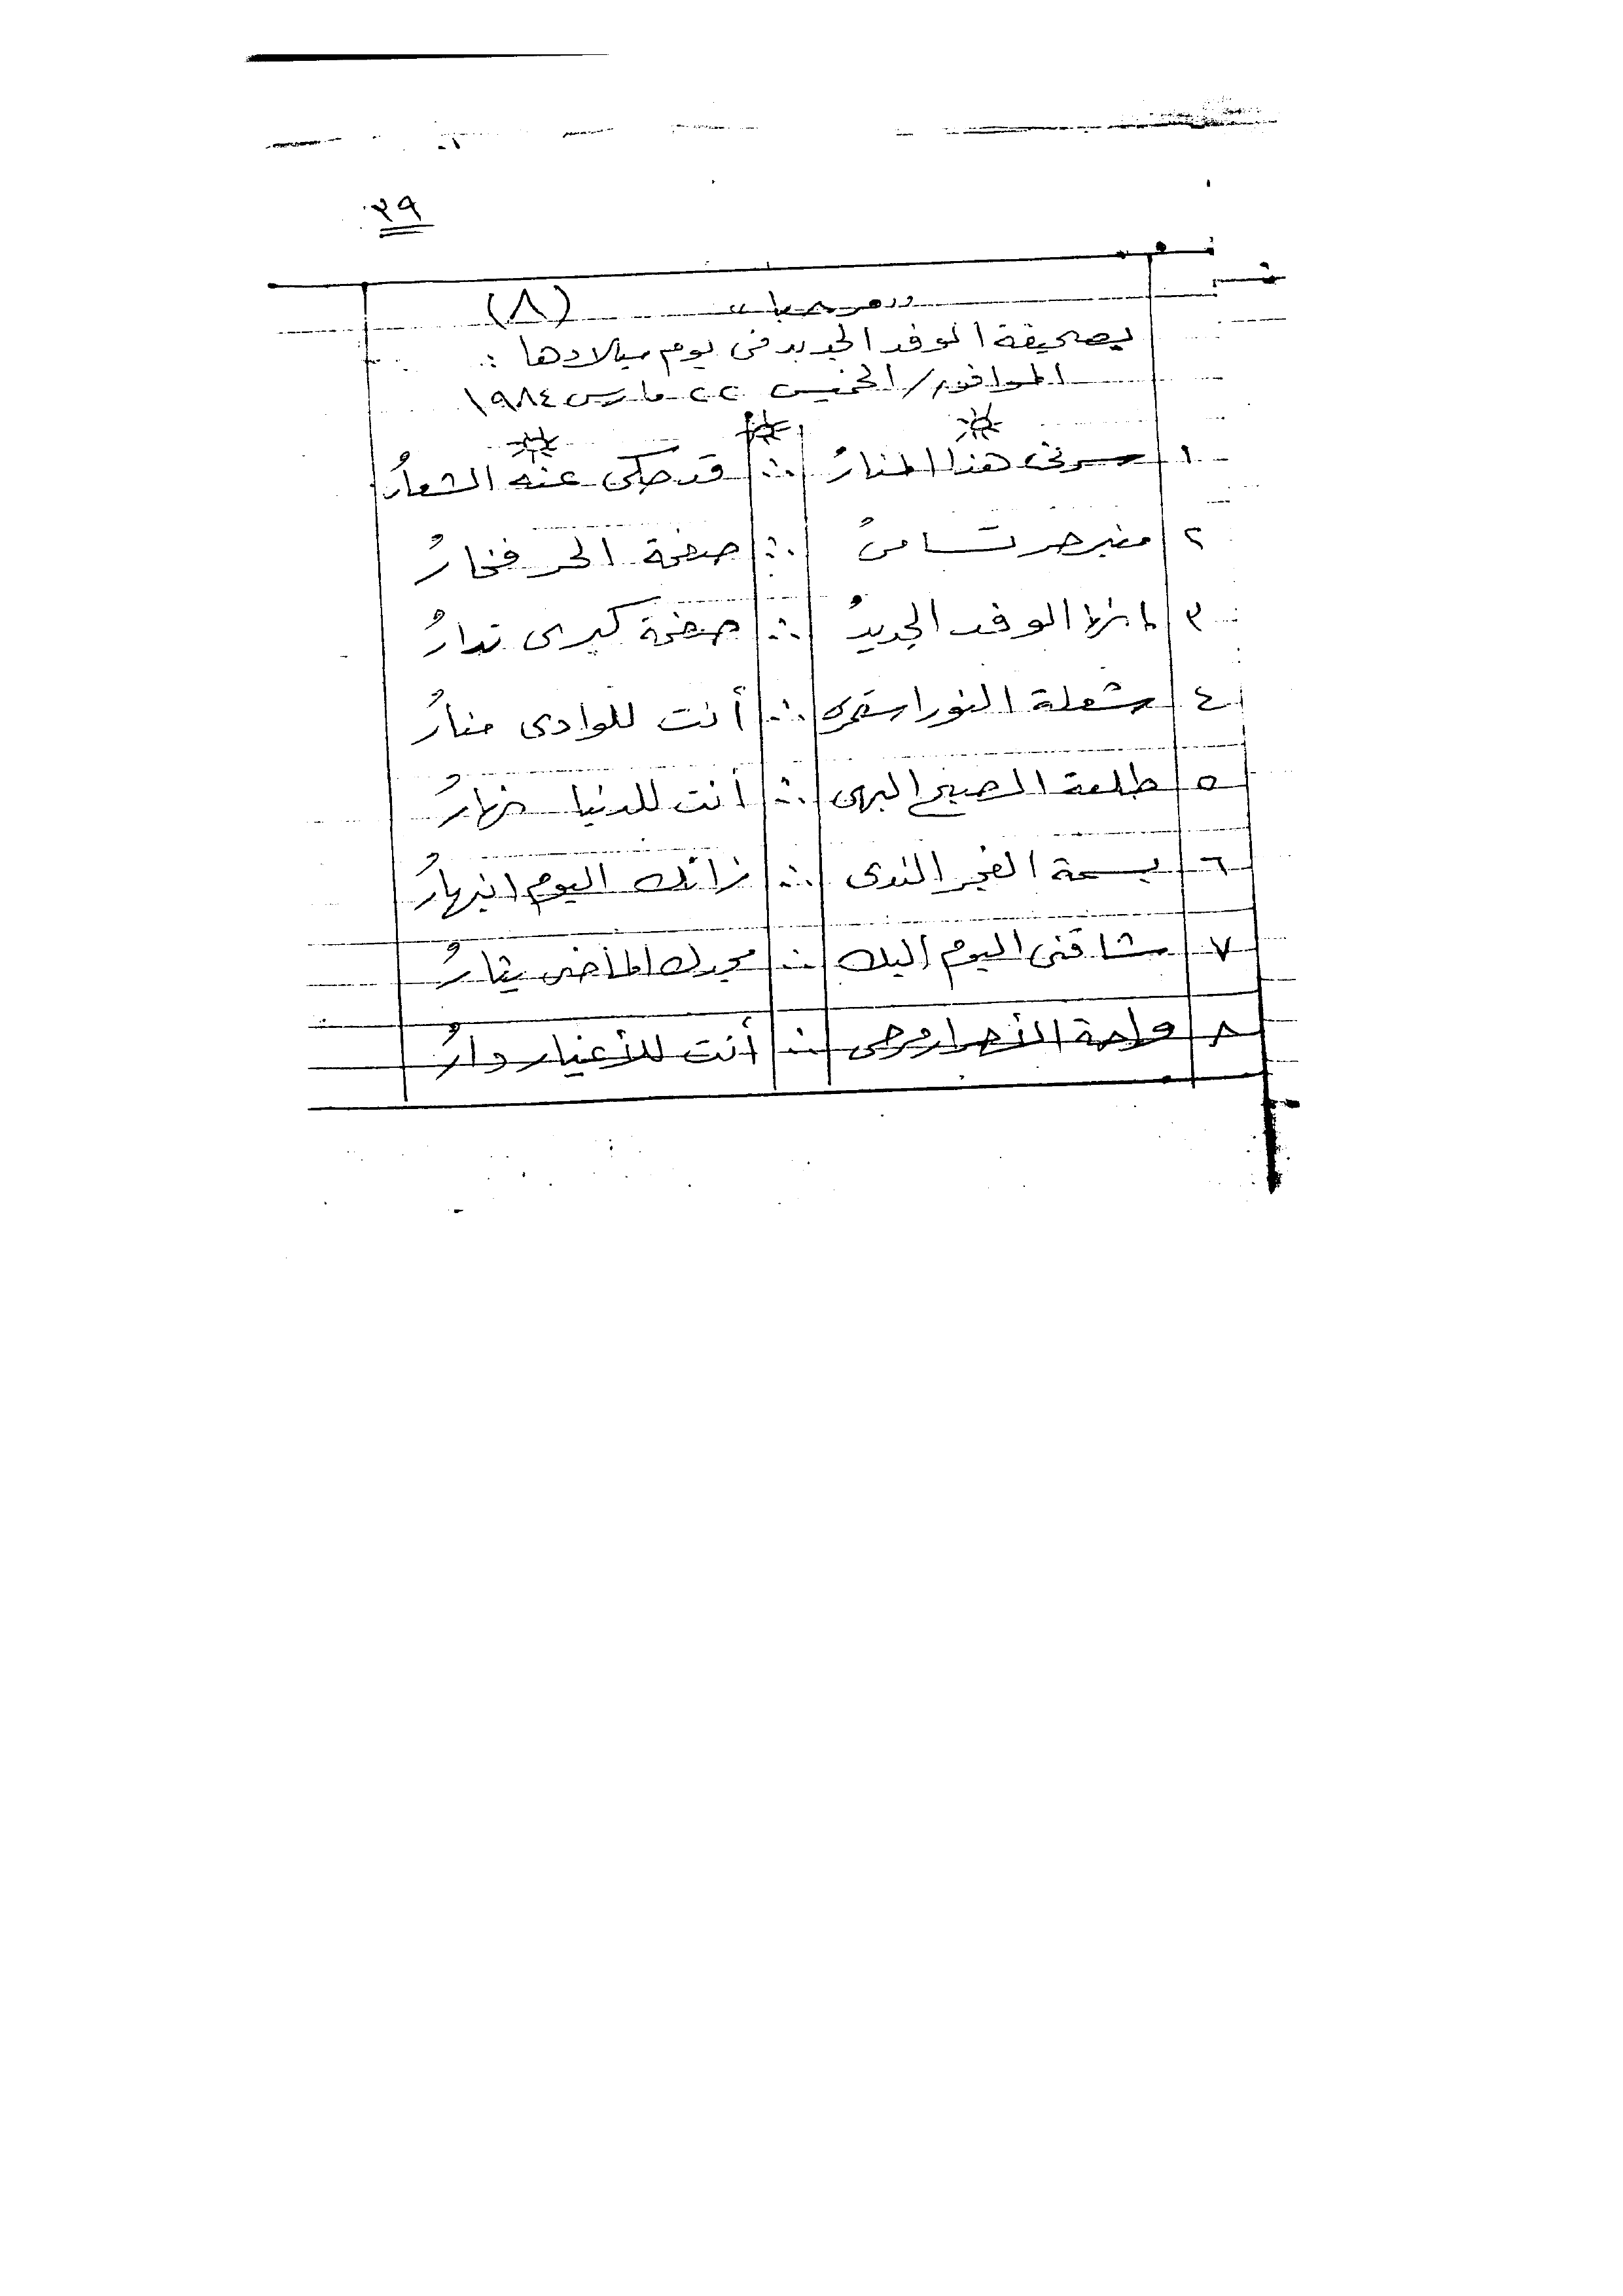 ٢٩
"مرحبا" (٨)
بصحيفة الوفد الجديد فى يوم ميلادها :
الموافق/ الخميس ٢٢ مارس ١٩٨٤
١ سرنى هذا المنارُ ∴ قد حكى عنه الشعارُ
٢ منبر حر تسامىُ ∴ صفحة الحر فخارُ
٣ إنها الوفد الجديدُ ∴ صفحة كبرى تدارُ
٤ شعلة النور استمرى ∴ أنت للوادى منارُ
٥ طلعة الصبح البهى ∴ أنت للدنيا نهارُ
٦ بسمة الفجر الندى ∴ زانك اليوم انبهارُ
٧ شاقنى اليوم إليك ∴ مجدك الماضى يثارُ
٨ واحة الأحرار مرحى ∴ أنت للأخيار دارُ